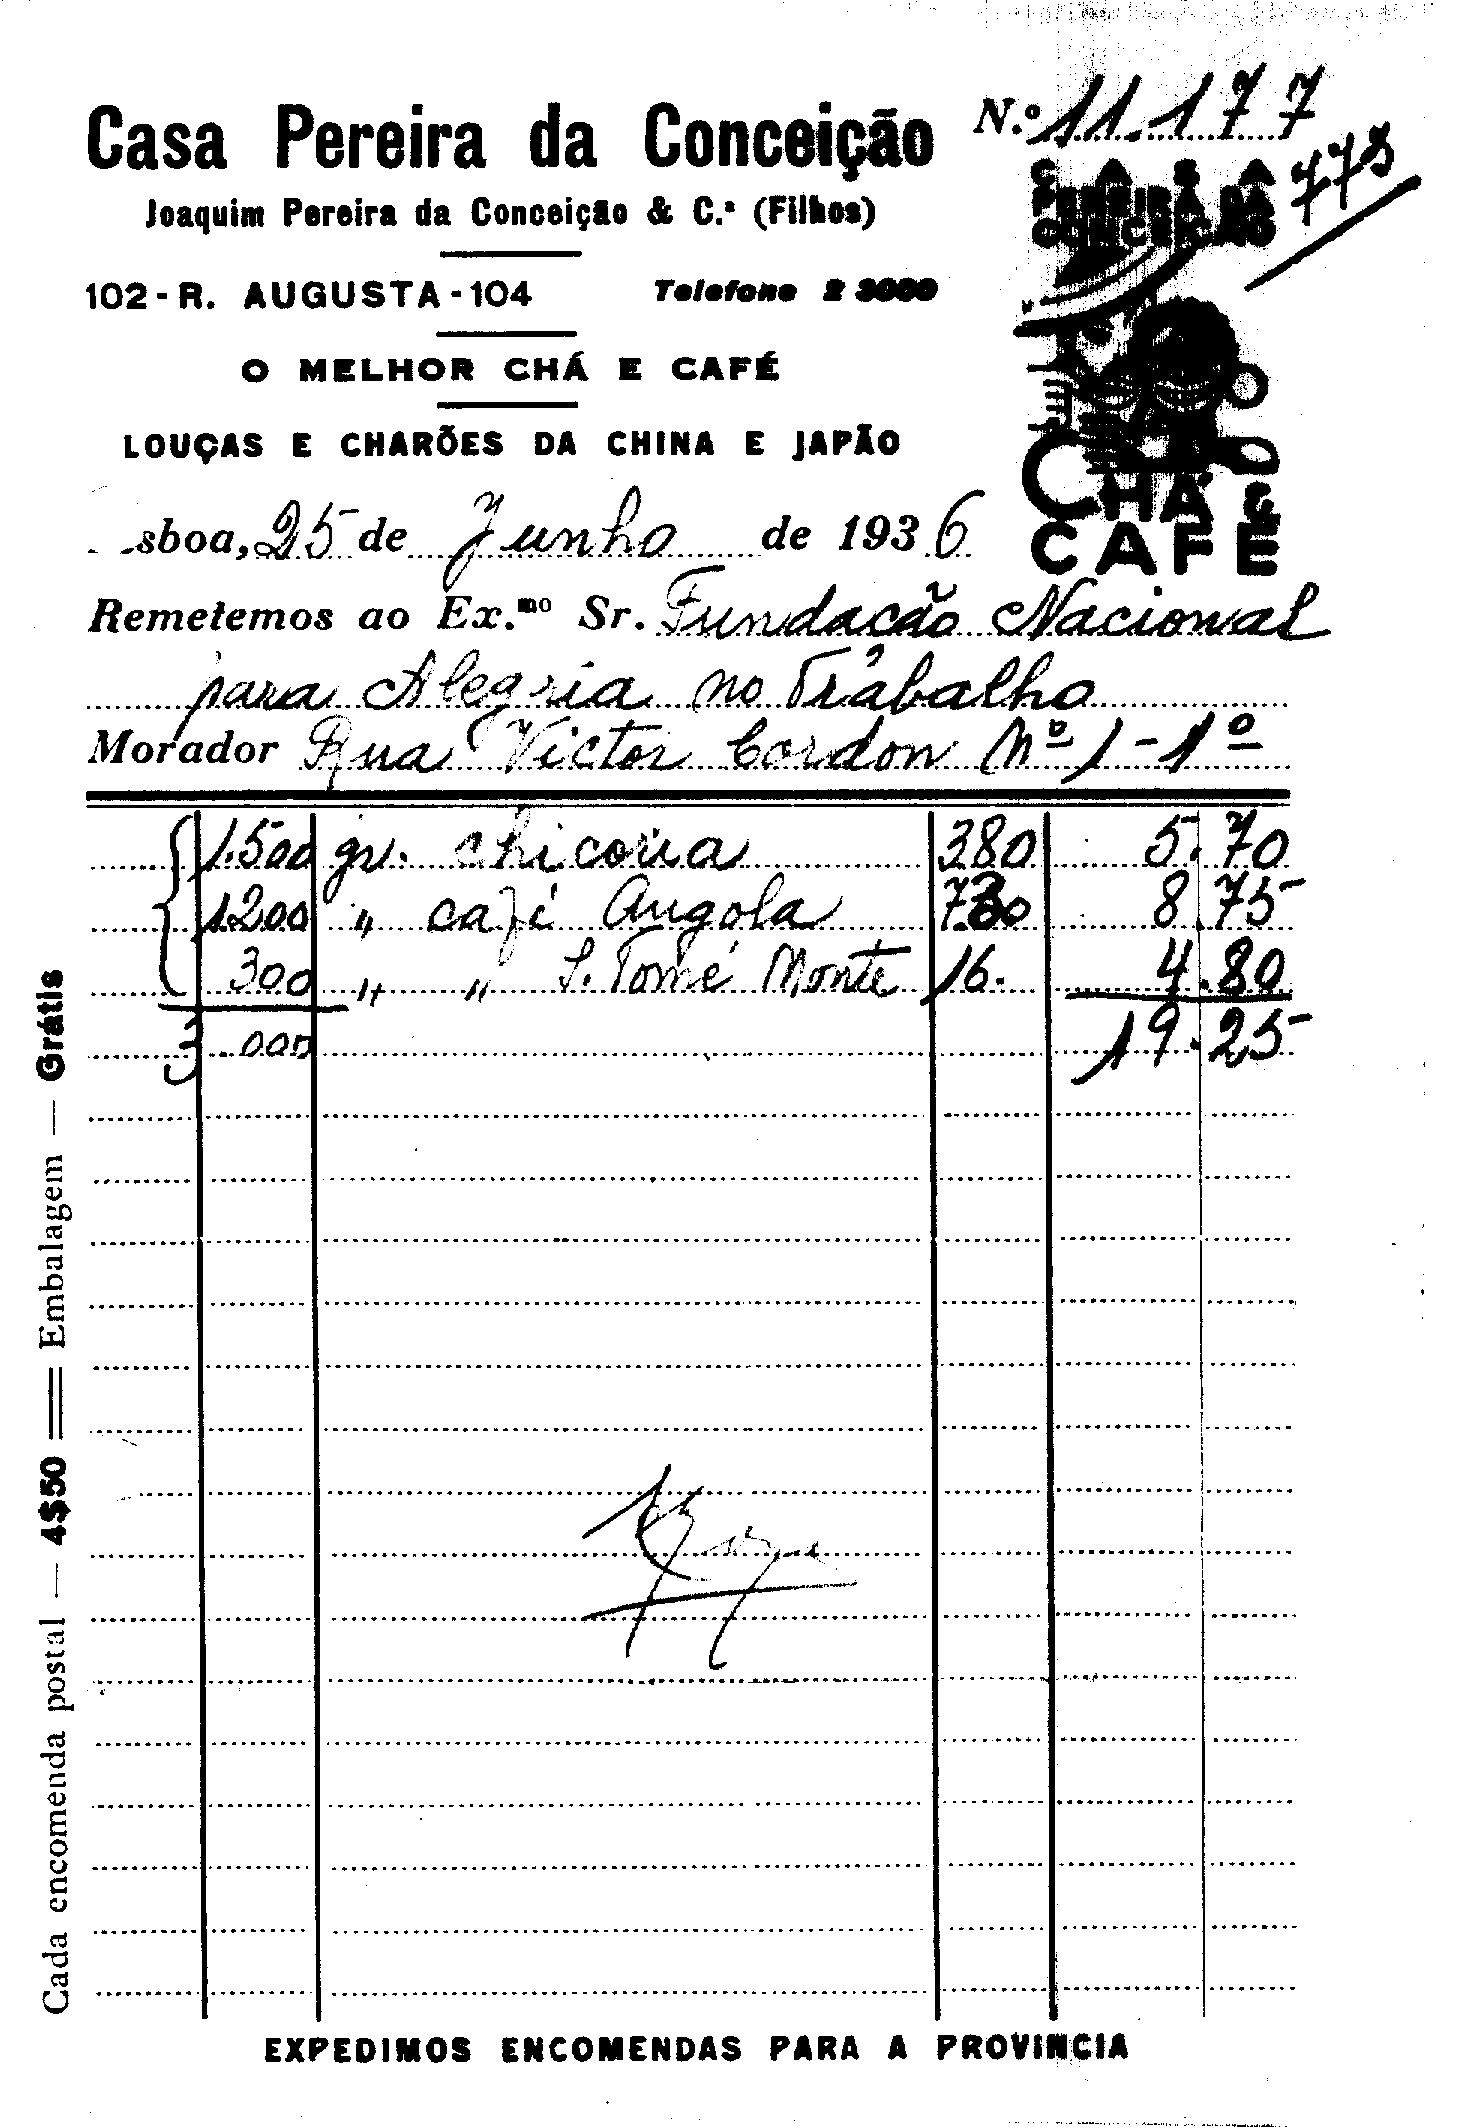 Casa Pereira da Conceição
N.º 11.177
778
Joaquim Pereira da Conceição & C.ª (Filhos)
CASA
PEREIRA DA
CONCEIÇÃO
102-R. AUGUSTA-104 Telefone 2 3000
O MELHOR CHÁ E CAFÉ
LOUÇAS E CHARÕES DA CHINA E JAPÃO
CHÁ &
CAFÉ
sboa, 25 de Junho de 1936
Remetemos ao Ex.mo Sr. Fundacão Nacional
para Alegria no Trabalho
Morador Rua Victor Cordon Nº 1-1º
1.500 gr. chicoria 380 5.70
1200 " café Angola 730 8.75
300 " " S. Tomé Monte 16. 4.80
3.000 19.25
Cada encomenda postal — 4$50 = Embalagem — Grátis
EXPEDIMOS ENCOMENDAS PARA A PROVINCIA